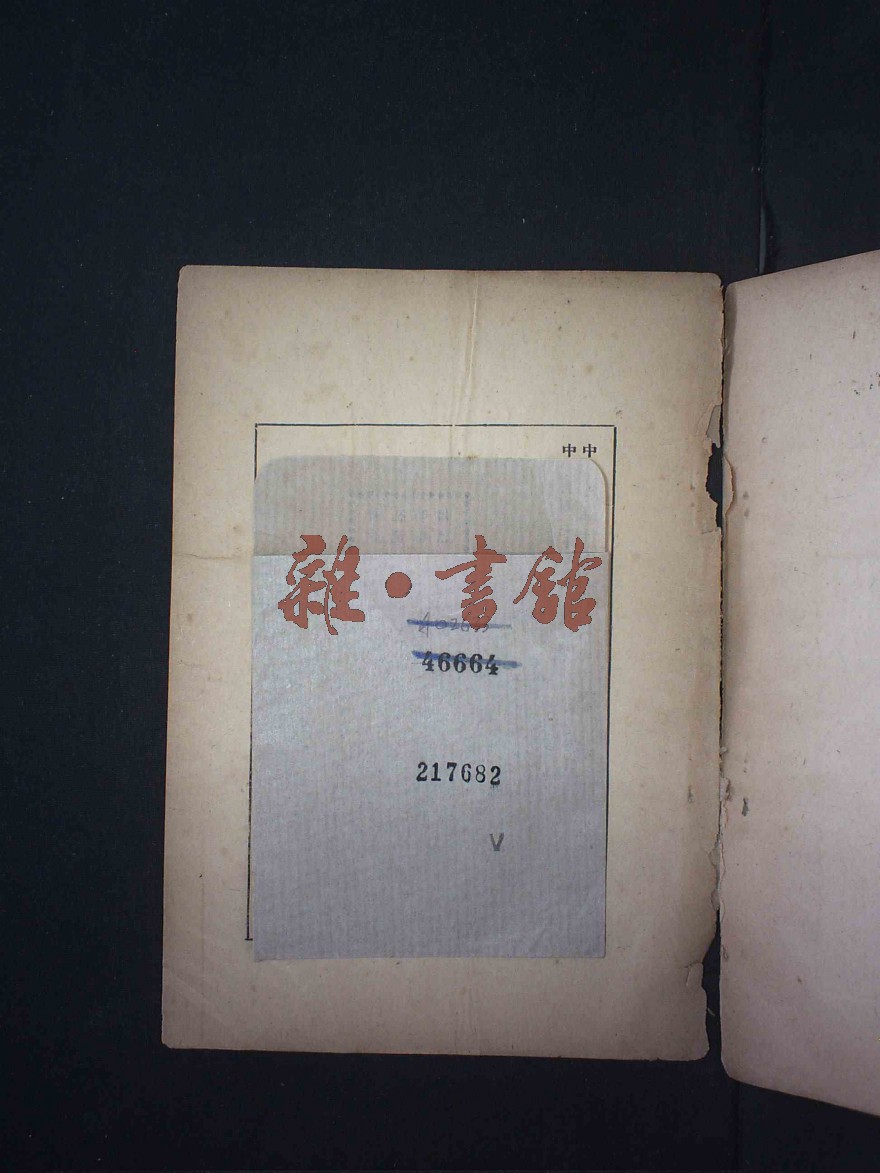 中中
雜·書館
46664
217682
V